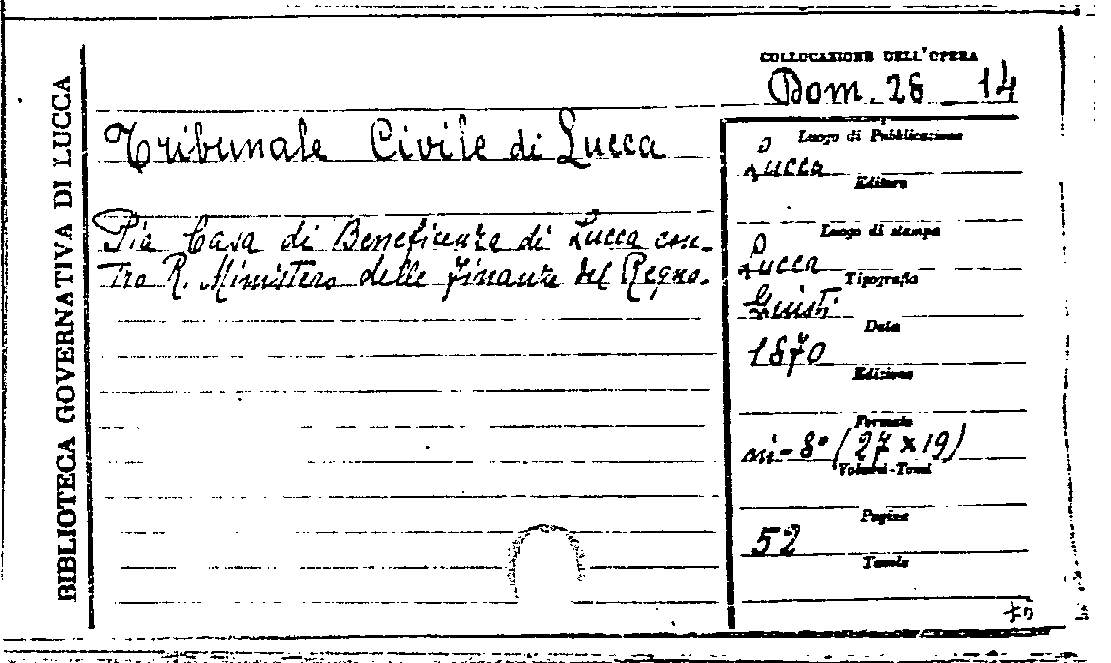 BIBLIOTECA GOVERNATIVA DI LUCCA
COLLOCAZIONE DELL'OPERA
Dom. 26 14
Tribunale Civile di Lucca
Pia Casa di Beneficenza di Lucca con-
tro R. Ministero delle Finanze del Regno.
Luogo di Pubblicazione
Lucca
Editore
Luogo di stampa
Lucca
Tipografia
Giusti
Data
1870
Edizione
Formato
in-8° (27 x 19)
Volumi-Tomi
Pagine
52
Tavole